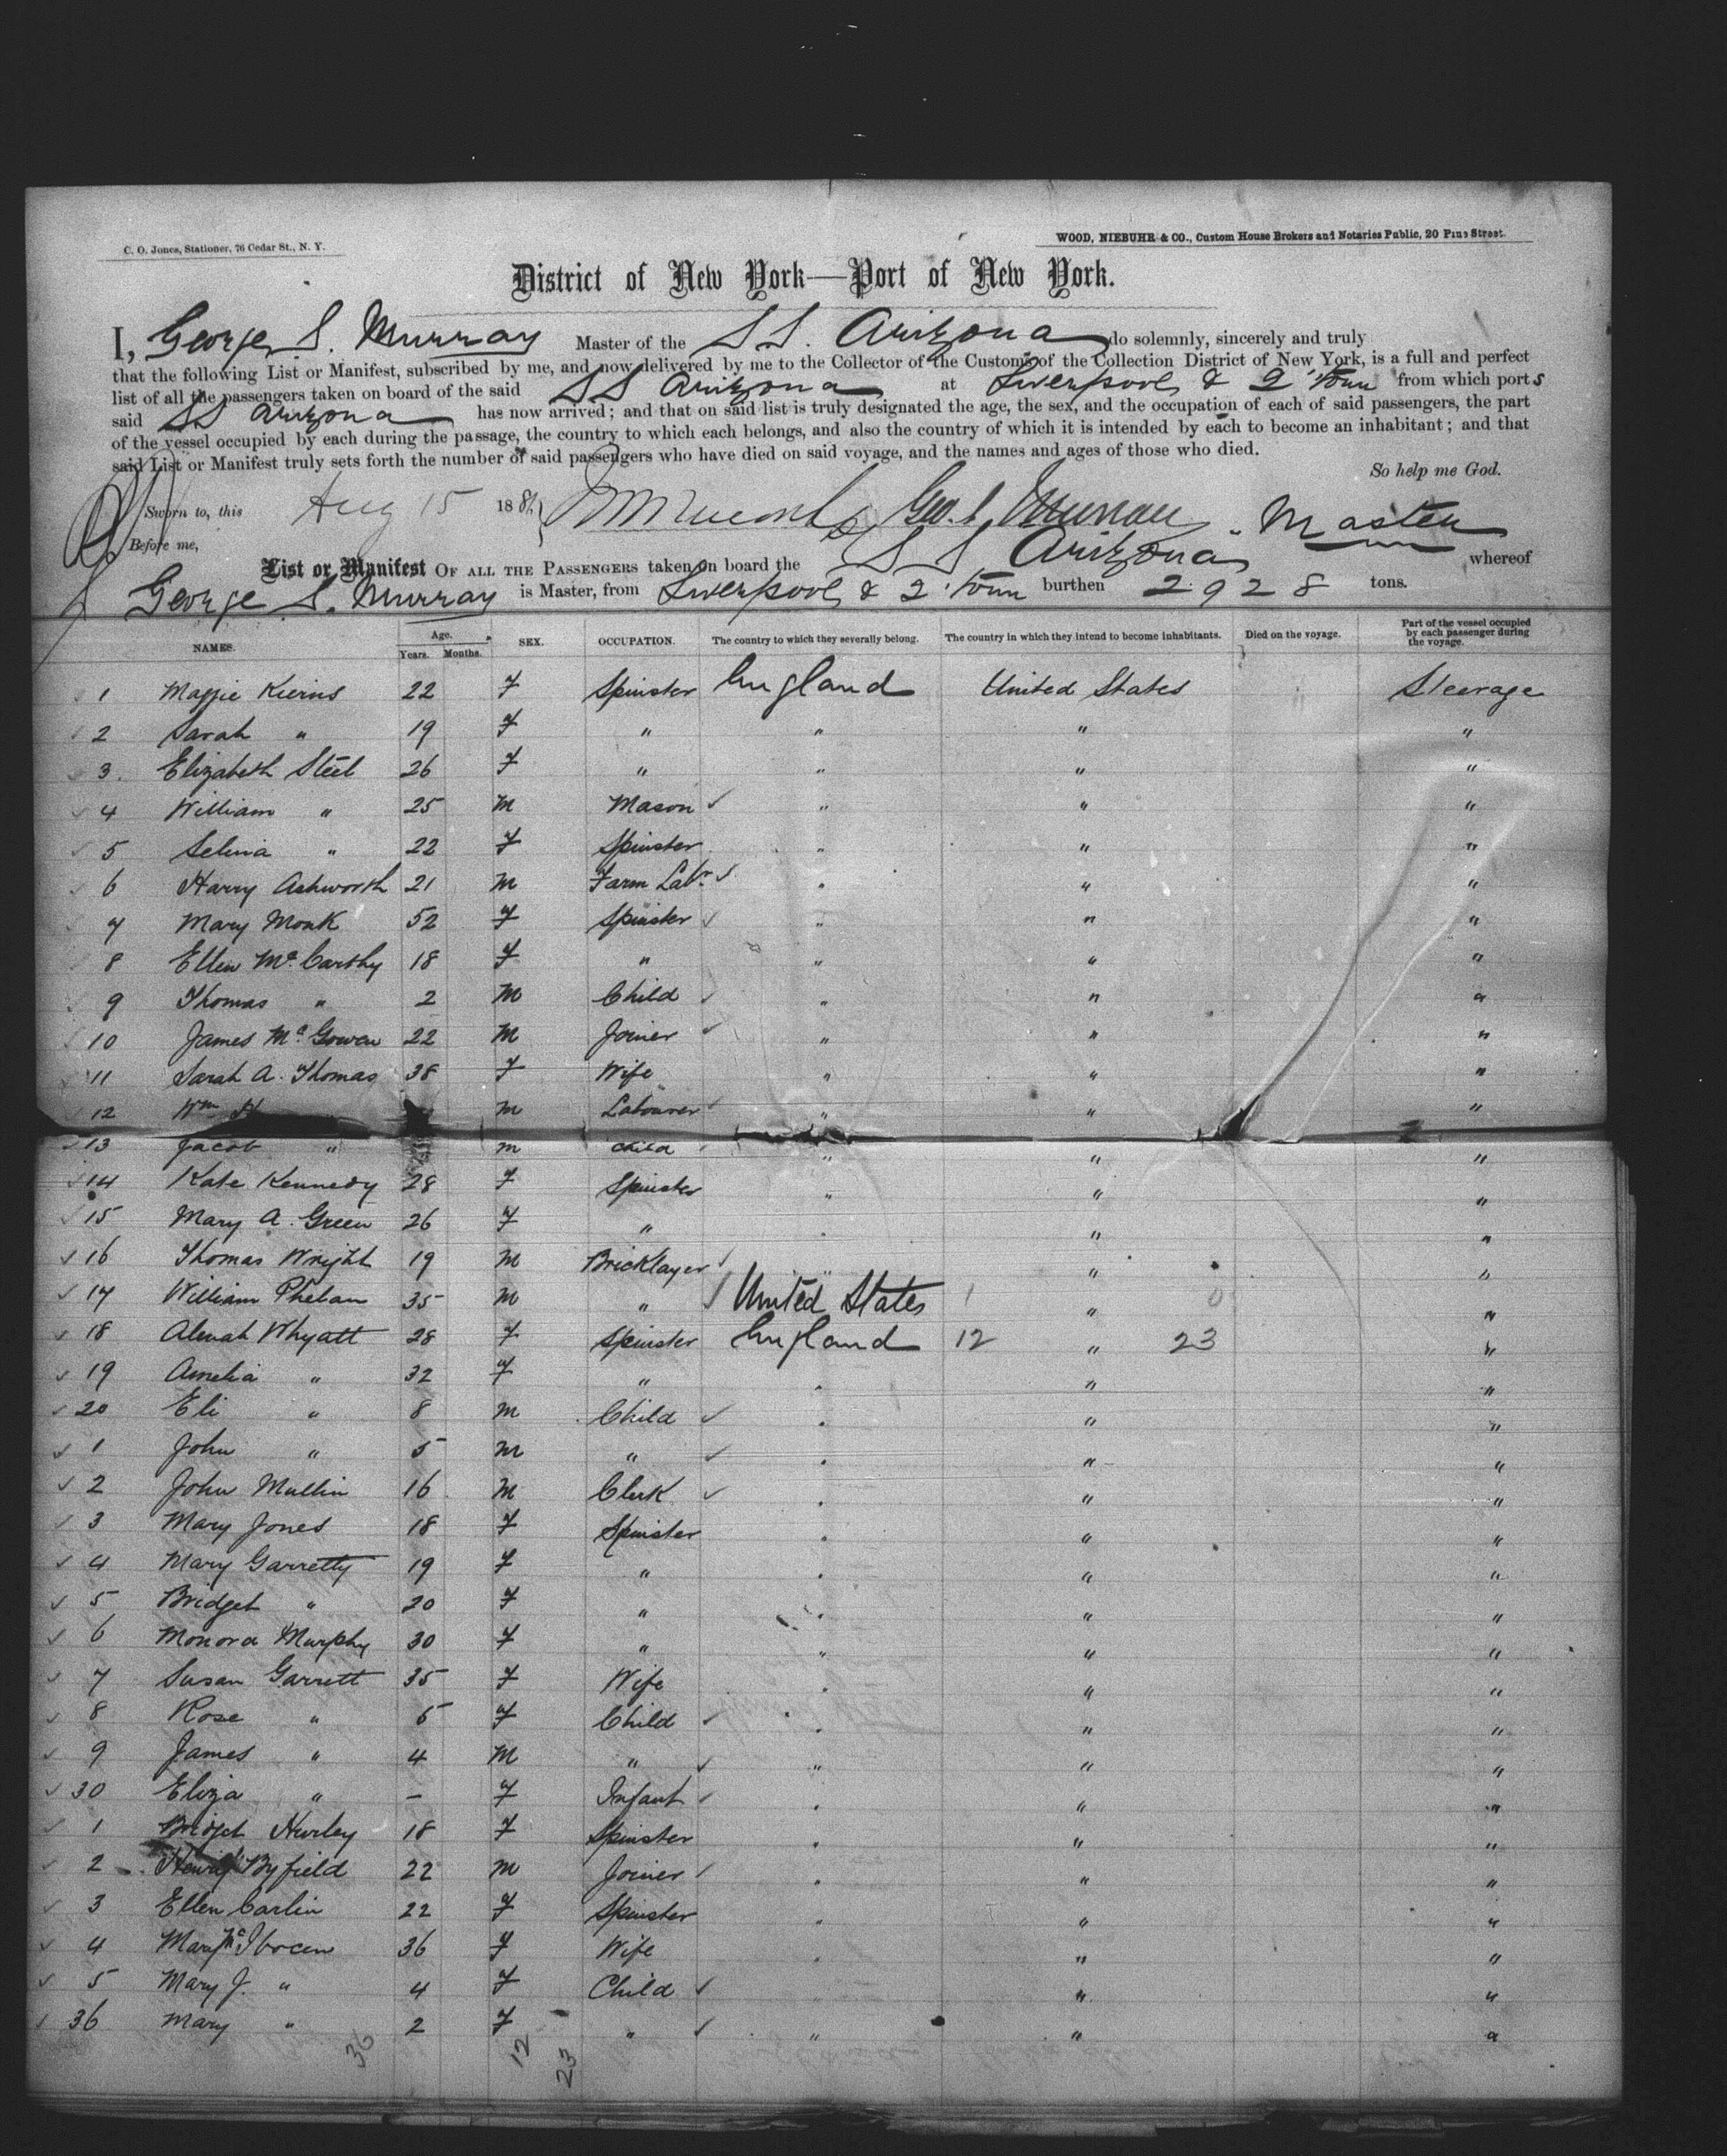 C. O. Jones, Stationer, 76 Cedar St., N. Y.
WOOD, NIEBUHR & CO., Custom House Brokers and Notaries Public, 20 Pine Street.
District of New York—Port of New York.
I, George S. Murray Master of the SS. Arizona do solemnly, sincerely and truly
that the following List or Manifest, subscribed by me, and now delivered by me to the Collector of the Customs of the Collection District of New York, is a full and perfect
list of all the passengers taken on board of the said SS Arizona at Liverpool & Q'town from which ports
said SS Arizona has now arrived; and that on said list is truly designated the age, the sex, and the occupation of each of said passengers, the part
of the vessel occupied by each during the passage, the country to which each belongs, and also the country of which it is intended by each to become an inhabitant; and that
said List or Manifest truly sets forth the number of said passengers who have died on said voyage, and the names and ages of those who died.
So help me God.
Sworn to, this Aug 15 188 Geo. S. Murray Master
Before me,
List or Manifest OF ALL THE PASSENGERS taken on board the SS Arizona whereof
George S. Murray is Master, from Liverpool & Q'town burthen 2928 tons.
NAMES. Age. Years. Months. SEX. OCCUPATION. The country to which they severally belong. The country in which they intend to become inhabitants. Died on the voyage. Part of the vessel occupied by each passenger during the voyage.
1 Maggie Kierns 22 F Spinster England United States Steerage
2 Sarah " 19 F " " " "
3. Elizabeth Steel 26 F " " " "
4 William " 25 M Mason " " "
5 Selina " 22 F Spinster " " "
6 Harry Ashworth 21 M Farm Labr " " "
7 Mary Monk 52 F Spinster " " "
8 Ellen McCarthy 18 F " " " "
9 Thomas " 2 M Child " " "
10 James McGowen 22 M Joiner " " "
11 Sarah A. Thomas 38 F Wife " " "
12 Wm H M Labourer " " "
13 Jacob " M Child " " "
14 Kate Kennedy 28 F Spinster " " "
15 Mary A. Green 26 F " " " "
16 Thomas Wright 19 M Bricklayer " " "
17 William Phelan 35 M " United States 1 " 0 "
18 Alenah Whyatt 28 F Spinster England 12 " 23 "
19 Amelia " 32 F " " " "
20 Eli " 8 M Child " " "
1 John " 5 M " " " "
2 John Mullin 16 M Clerk " " "
3 Mary Jones 18 F Spinster " " "
4 Mary Garretty 19 F " " " "
5 Bridget " 20 F " " " "
6 Monora Murphy 30 F " " " "
7 Susan Garrett 35 F Wife " " "
8 Rose " 6 F Child " " "
9 James " 4 M " " " "
30 Eliza " - F Infant " " "
1 Bridget Hurley 18 F Spinster " " "
2 Henry Byfield 22 M Joiner " " "
3 Ellen Carlin 22 F Spinster " " "
4 Mary 36 F Wife " " "
5 Mary J. " 4 F Child " " "
36 Mary " 2 F " " " "
36 12 23